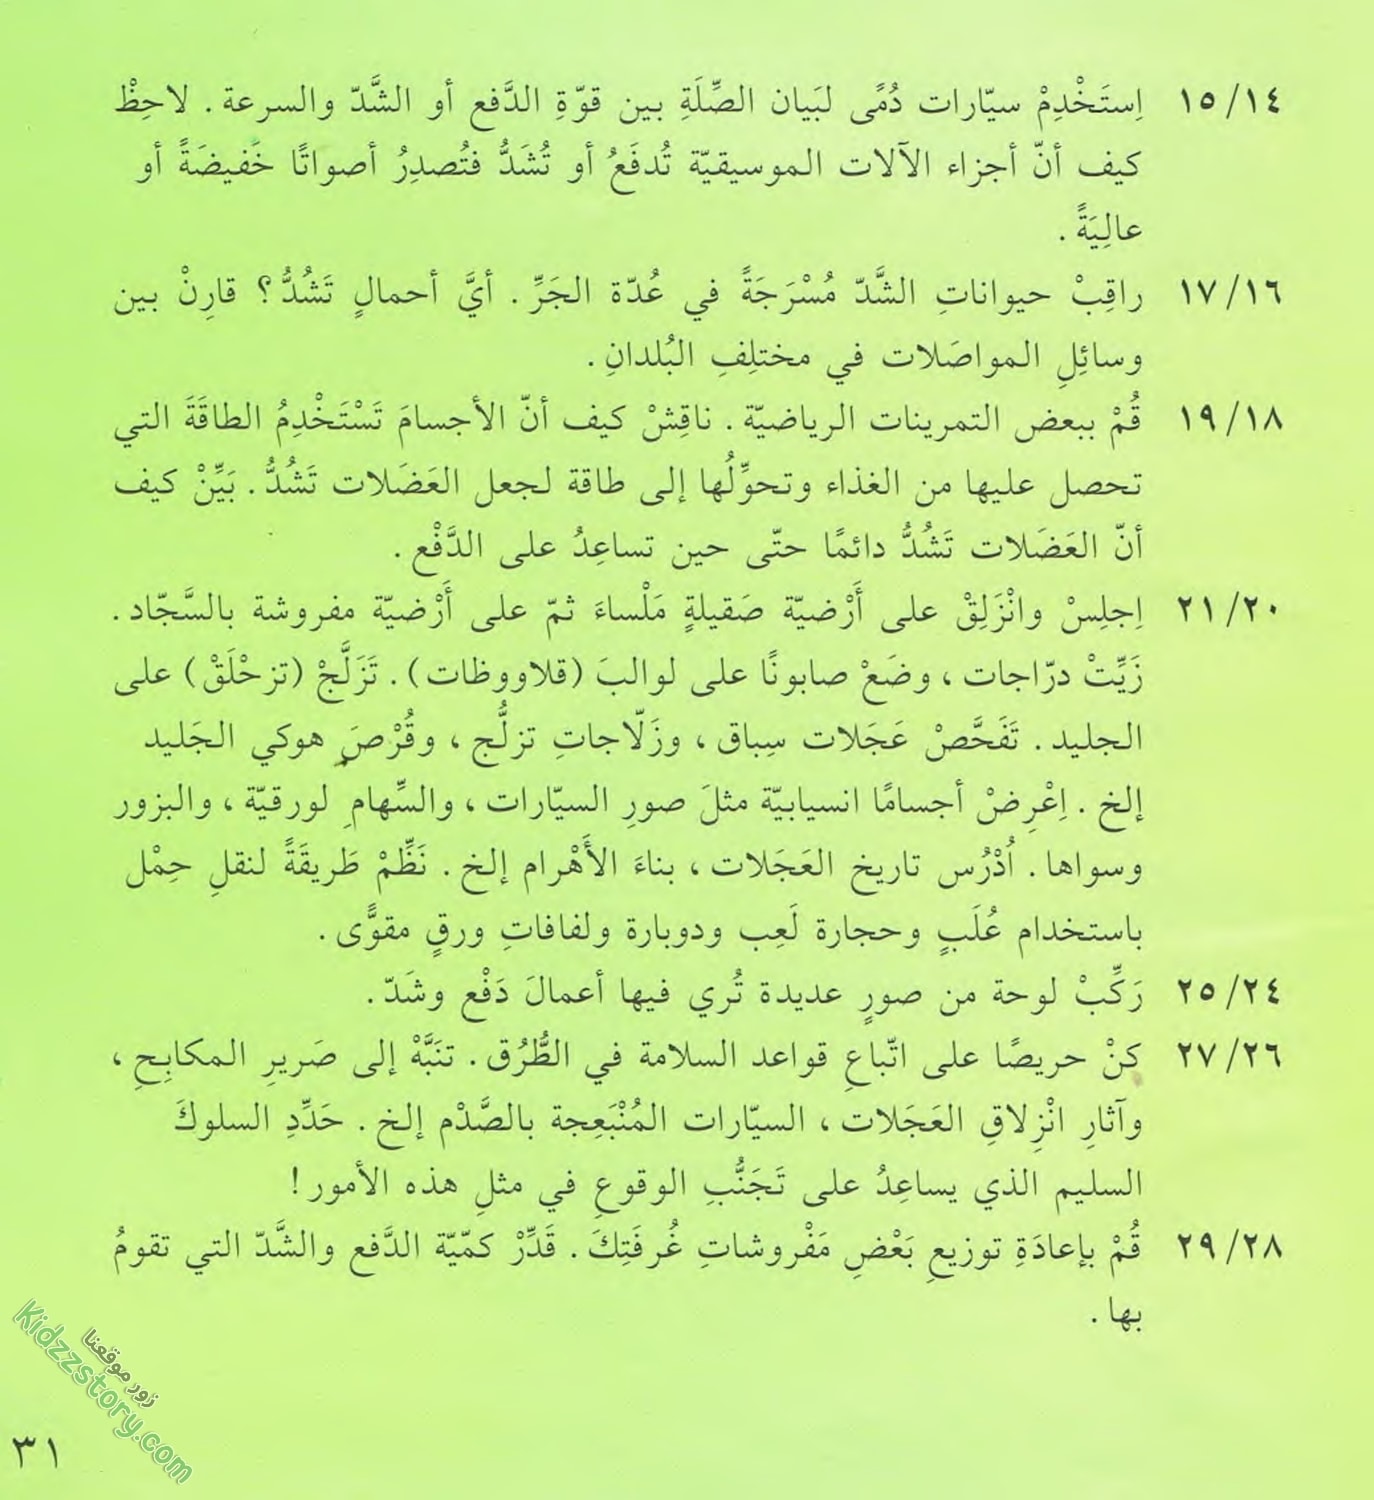 ١٥/١٤ اِستَخْدِمْ سيّارات دُمًى لبَيان الصِّلَةِ بين قوّةِ الدَّفع أو الشَّدّ والسرعة. لاحِظْ
كيف أنّ أجزاء الآلات الموسيقيّة تُدفَعُ أو تُشَدُّ فتُصدِرُ أصواتًا خَفيضَةً أو
عالِيَةً.
١٧/١٦ راقِبْ حيواناتِ الشَّدّ مُسْرَجَةً في عُدّة الجَرِّ. أيَّ أحمالٍ تَشُدُّ؟ قارِنْ بين
وسائِلِ المواصَلات في مختلِفِ البُلدانِ.
١٩/١٨ قُمْ ببعض التمرينات الرياضيّة. ناقِشْ كيف أنّ الأجسامَ تَسْتَخْدِمُ الطاقَةَ التي
تحصل عليها من الغذاء وتحوِّلُها إلى طاقة لجعل العَضَلات تَشُدُّ. بَيِّنْ كيف
أنّ العَضَلات تَشُدُّ دائمًا حتّى حين تساعِدُ على الدَّفْع.
٢١/٢٠ اِجلِسْ وانْزَلِقْ على أَرْضيّة صَقيلةٍ مَلْساءَ ثمّ على أَرْضيّة مفروشة بالسَّجّاد.
زَيِّتْ درّاجات، وضَعْ صابونًا على لوالبَ (قلاووظات). تَزَلَّجْ (تزحْلَقْ) على
الجليد. تَفَحَّصْ عَجَلات سِباق، وزَلّاجاتِ تزلُّج، وقُرْصَ هوكي الجَليد
إلخ. اِعْرِضْ أجسامًا انسيابيّة مثلَ صورِ السيّارات، والسِّهامِ لورقيّة، والبزور
وسواها. اُدْرُس تاريخ العَجَلات، بناءَ الأَهْرام إلخ. نَظِّمْ طَريقَةً لنقلِ حِمْل
باستخدام عُلَبٍ وحجارة لَعِب ودوبارة ولفافاتِ ورقٍ مقوًّى.
٢٥/٢٤ رَكِّبْ لوحة من صورٍ عديدة تُري فيها أعمالَ دَفْع وشَدّ.
٢٧/٢٦ كنْ حريصًا على اتّباعِ قواعد السلامة في الطُّرُق. تنَبَّهْ إلى صَريرِ المكابِحِ،
وآثارِ انْزِلاقِ العَجَلات، السيّارات المُنْبَعِجة بالصَّدْم إلخ. حَدِّدِ السلوكَ
السليم الذي يساعِدُ على تَجَنُّبِ الوقوعِ في مثلِ هذه الأمور!
٢٩/٢٨ قُمْ بإعادَةِ توزيعِ بَعْضِ مَفْروشاتِ غُرفَتِكَ. قَدِّرْ كمّيّة الدَّفع والشَّدّ التي تقومُ
بها.
زورو موقعنا
Kidzzstory.com
٣١